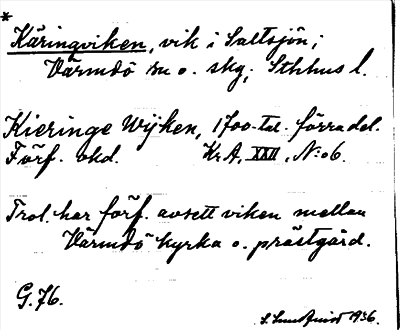 *
Käringviken, vik i Saltsjön;
Värmdö sn o. skg; Sthhus l.
Kieringe Wijken, 1700-tal. förra del.
Förf. okd. Kr A, XXII, N:o 6.
Trol. har förf. avsett viken mellan
Värmdö kyrka o. prästgård.
G. 76.
S. Sundquist 1936.